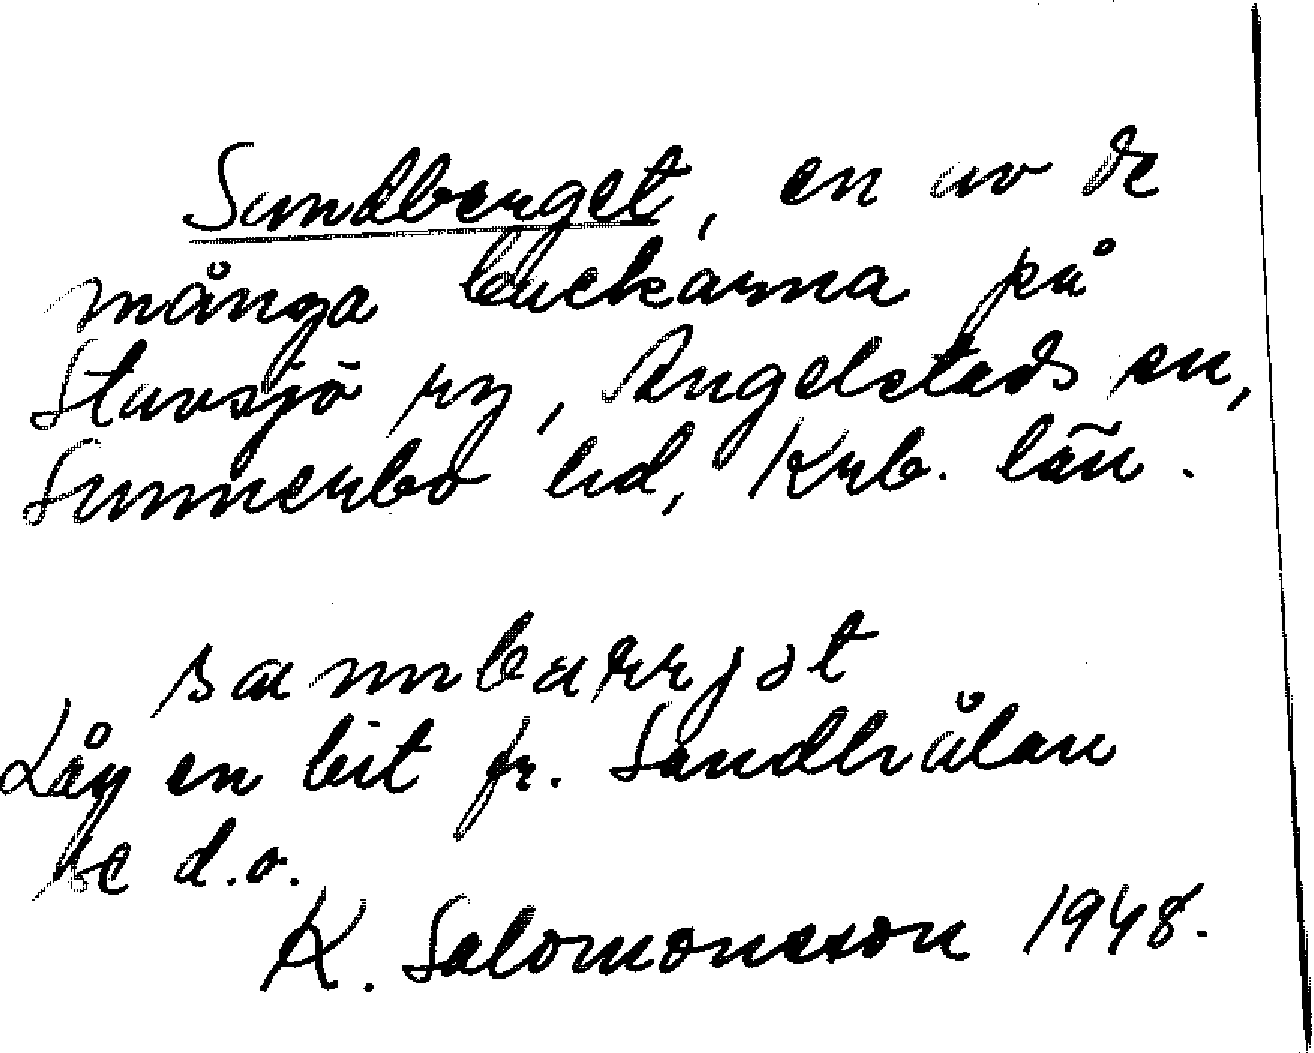 Sandberget, en av de
många backarna på
Stavsjö ry, Angelstads sn,
Sunnerbo hd, Krb. län.
Låg en bit fr. Sandhålan
se d.o.
K. Salomonsson 1948.